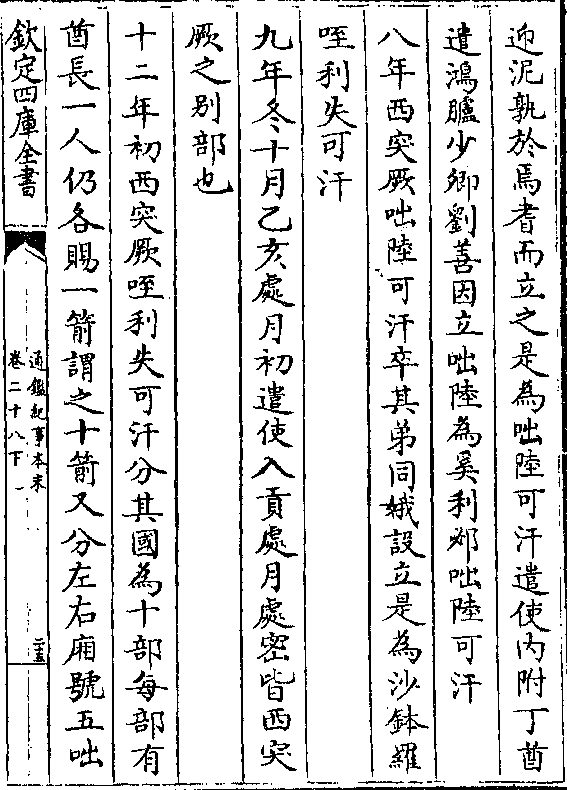 迎泥孰於焉耆而立之是為咄陸可汗遣使内附丁酉
遣鴻臚少卿劉善因立咄陸為奚利邲咄陸可汗
八年西突厥咄陸可汗卒其弟同娥設立是為沙鉢羅
咥利失可汗
九年冬十月乙亥處月初遣使入貢處月處密皆西突
厥之别部也
十二年初西突厥咥利失可汗分其國為十部每部有
酋長一人仍各賜一箭謂之十箭又分左右廂號五咄
欽定四庫全書
通鑑紀事本末
卷二十八下